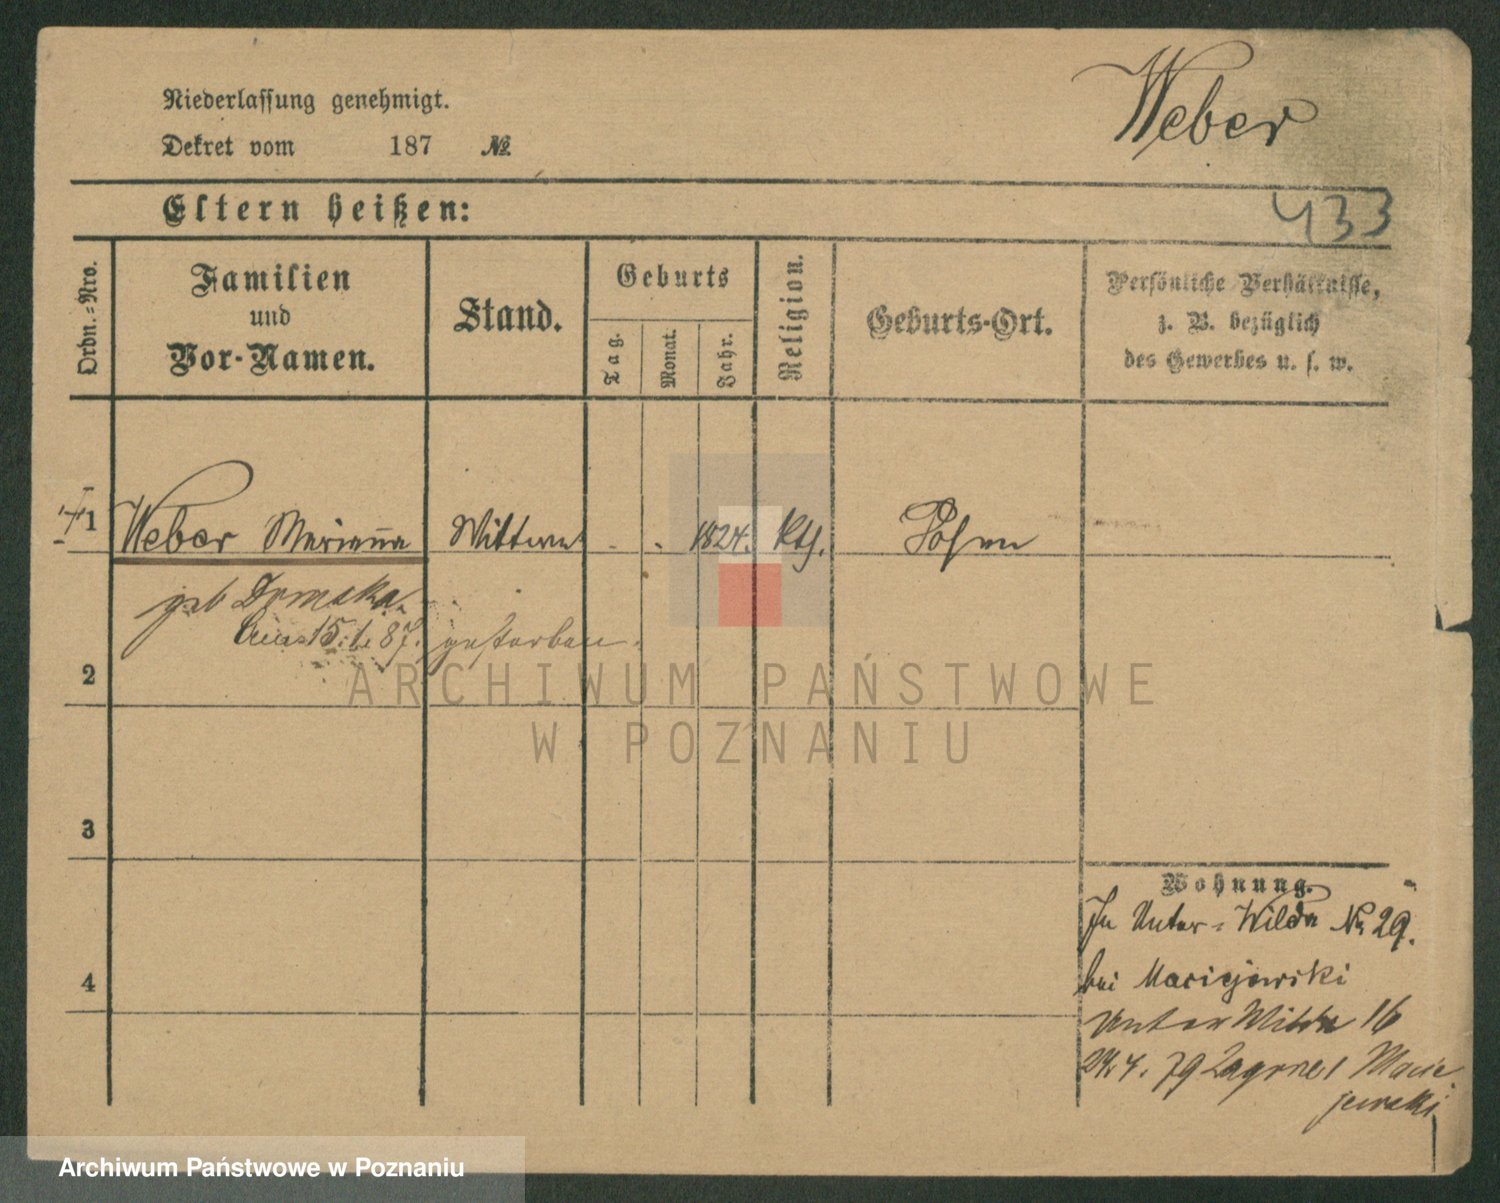 Weber
Niederlassung genehmigt.
Dekret vom 187 №
Eltern heißen:
433
Ordn.-Nro.
Familien
und
Vor-Namen.
Stand.
Geburts
Tag.
Monat.
Jahr.
Religion.
Geburts-Ort.
Persönliche Verhältnisse,
z. B. bezüglich
des Gewerbes u. s. w.
1 Weber Marianna Wittwe 1824. Kth. Posen
geb
15. 1. 87. gestorben.
2
ARCHIWUM PAŃSTWOWE
W POZNANIU
3
4
Wohnung.
In Unter-Wilda No 29.
bei Maciejewski
Unter Wilda 16
24. 4. 79 Zagorze 1 Macie
jewski
Archiwum Państwowe w Poznaniu